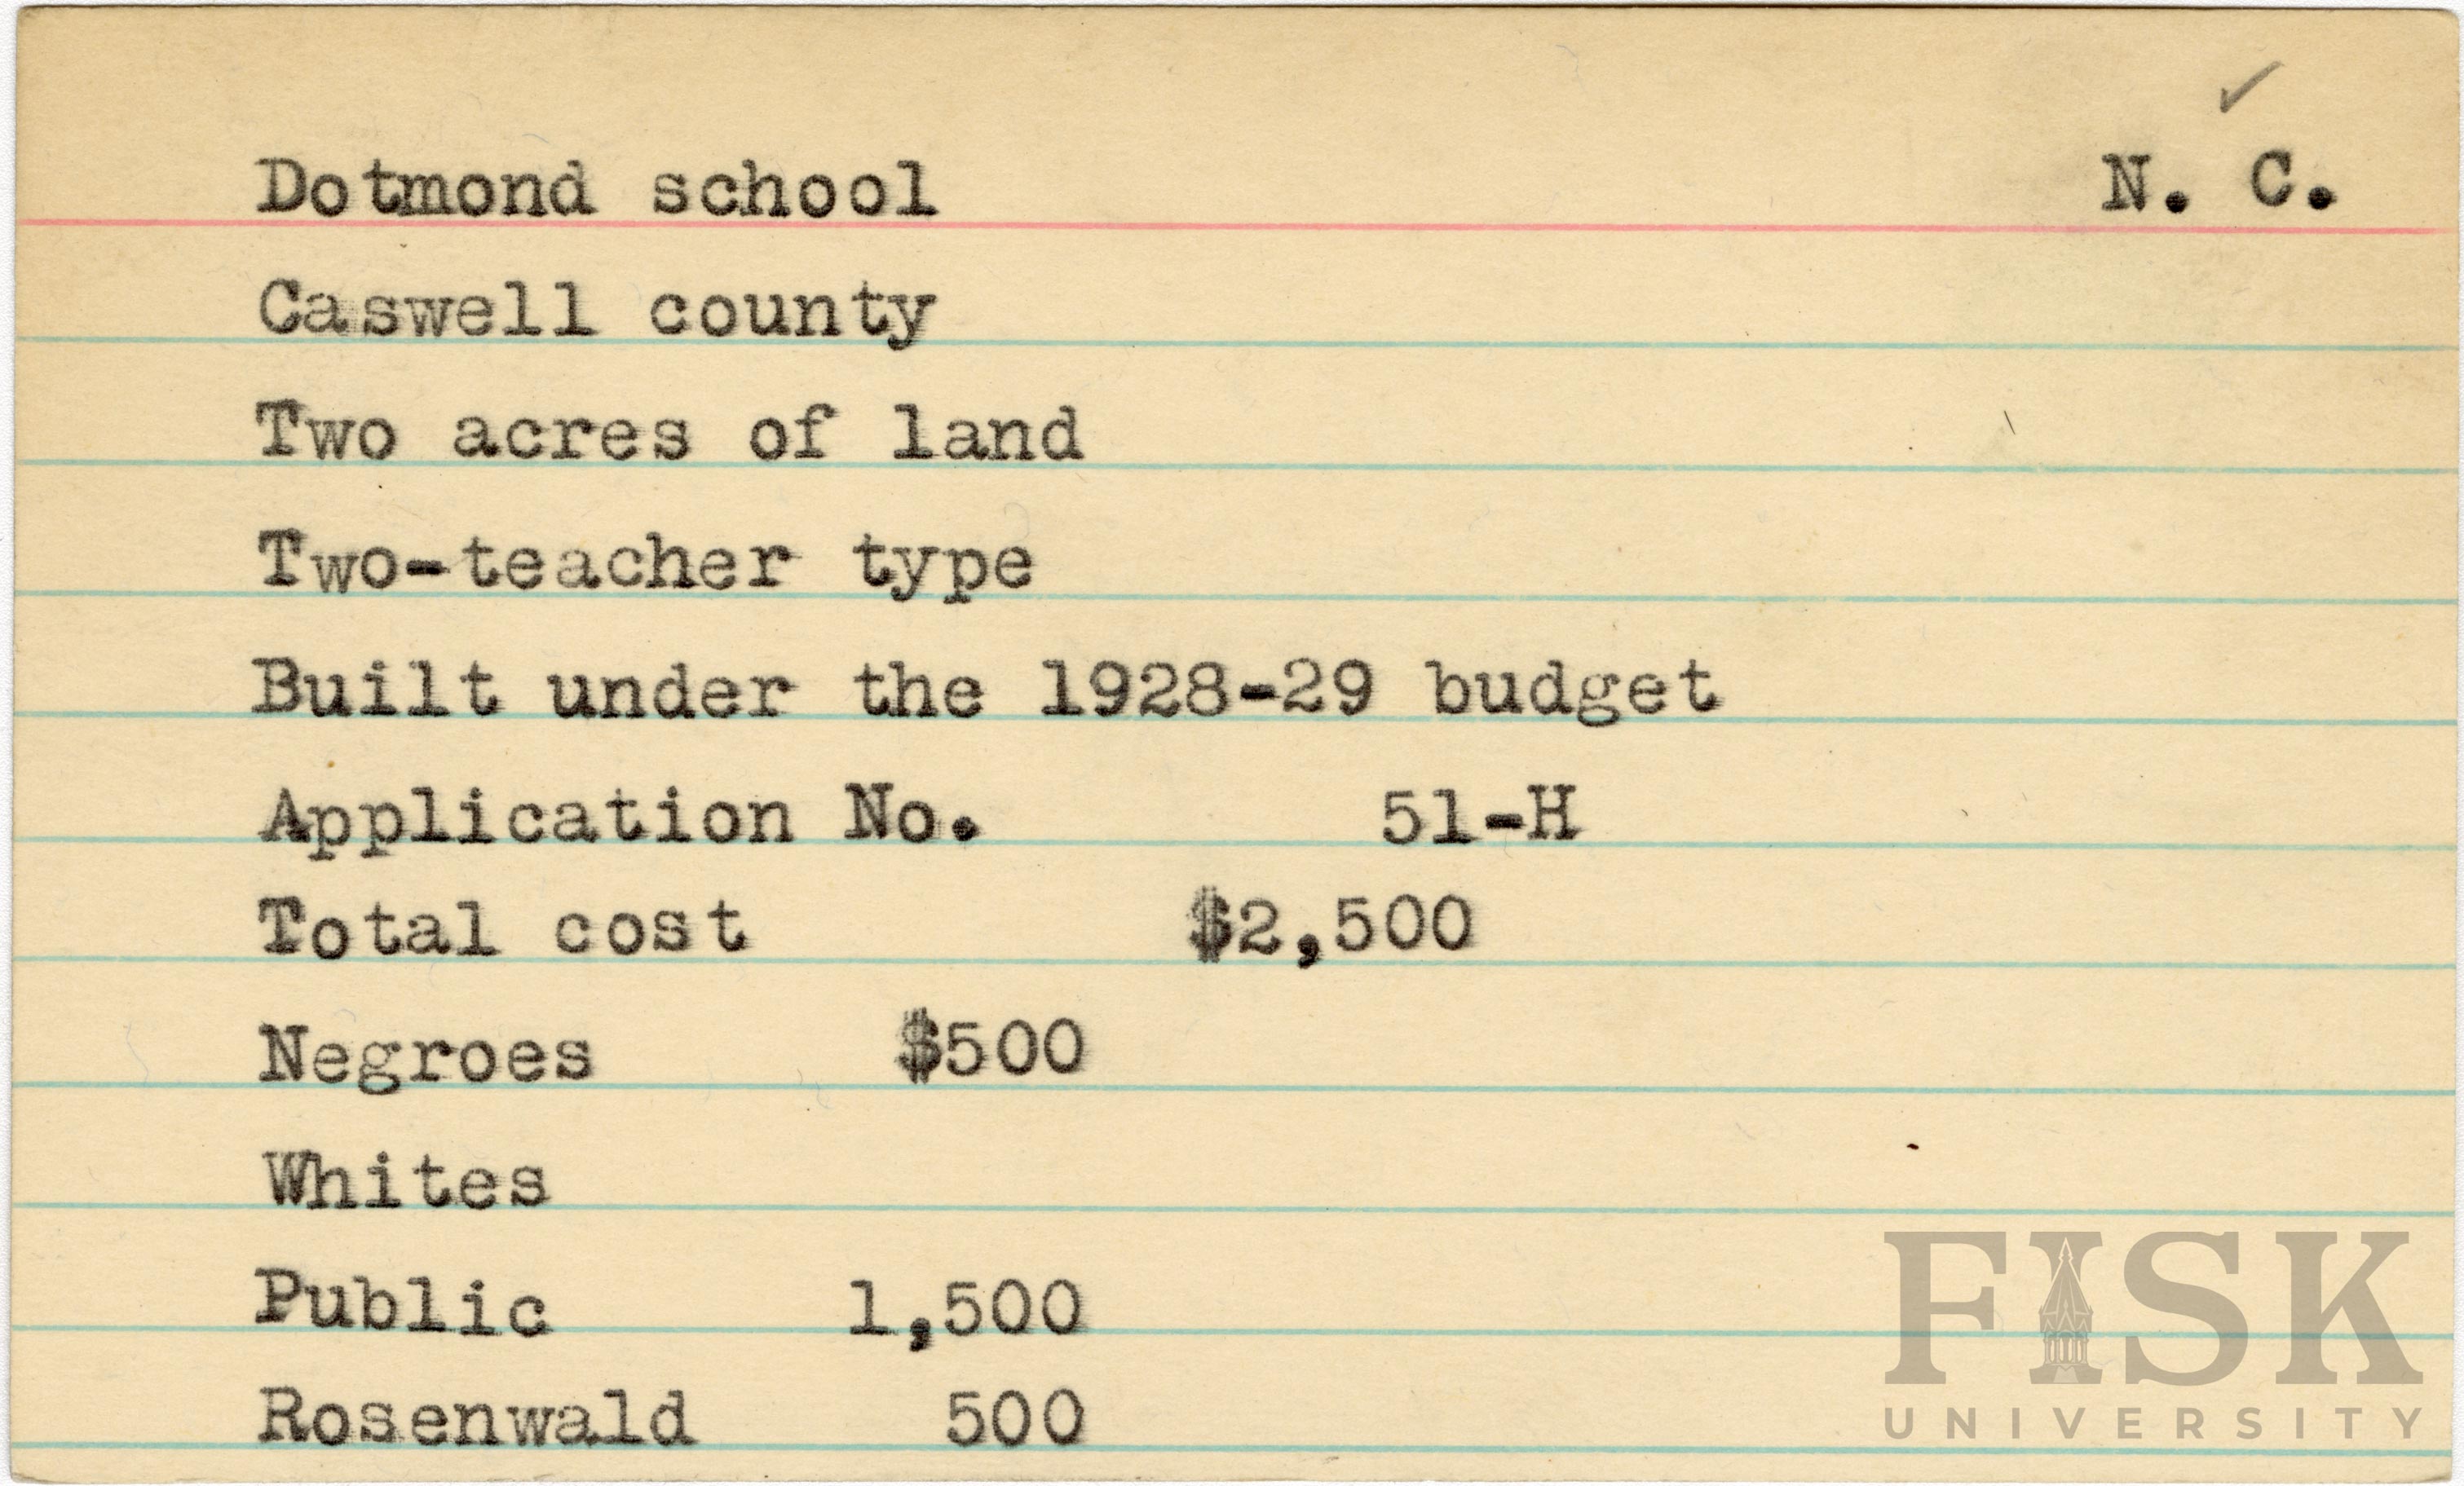 Dotmond school N. C.
Caswell county
Two acres of land
Two-teacher type
Built under the 1928-29 budget
Application No. 51-H
Total cost $2,500
Negroes $500
Whites
Public 1,500
Rosenwald 500
FISK
UNIVERSITY